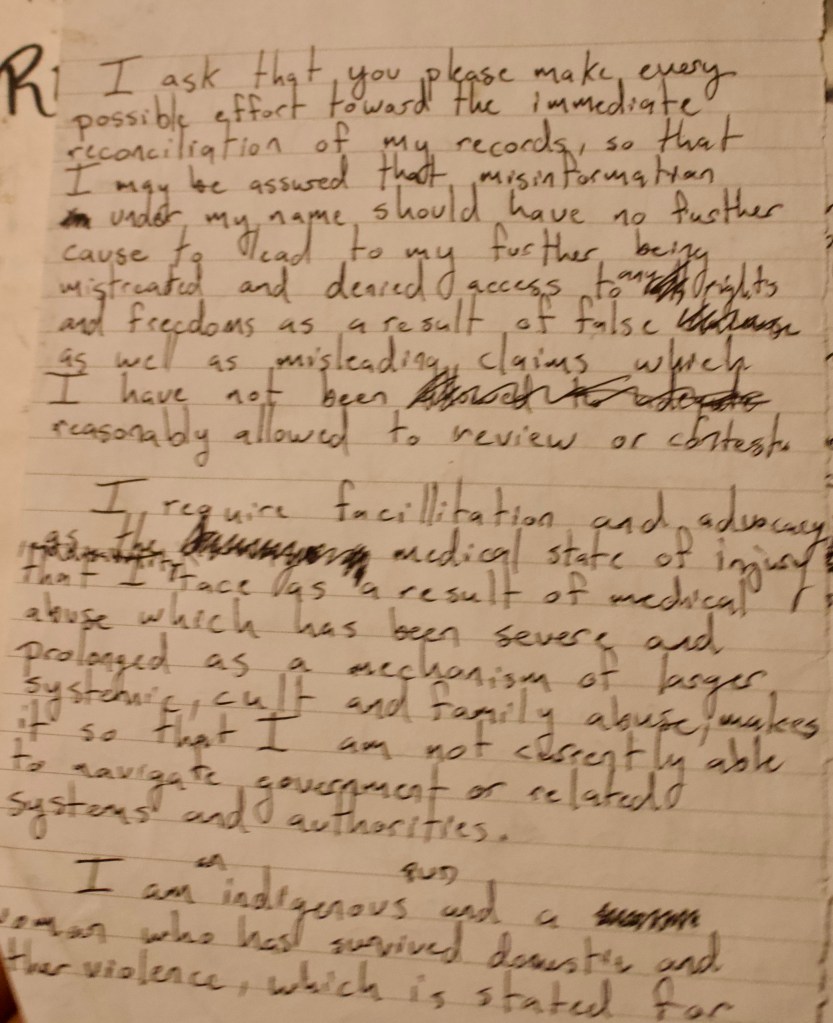 R I ask that you please make every
possible effort toward the immediate
reconciliation of my records, so that
I may be assured that misinformation
under my name should have no further
cause to lead to my further being
mistreated and denied access to any rights
and freedoms as a result of false
as well as misleading claims which
I have not been
reasonably allowed to review or contest.
I require facillitation and advocacy
as the medical state of injury
that I face as a result of medical
abuse which has been severe and
prolonged as a mechanism of larger
systemic, cult and family abuse, makes
it so that I am not currently able
to navigate government or related
systems and authorities.
I am an indigenous and a
woman who has survived domestic and
other violence, which is stated for